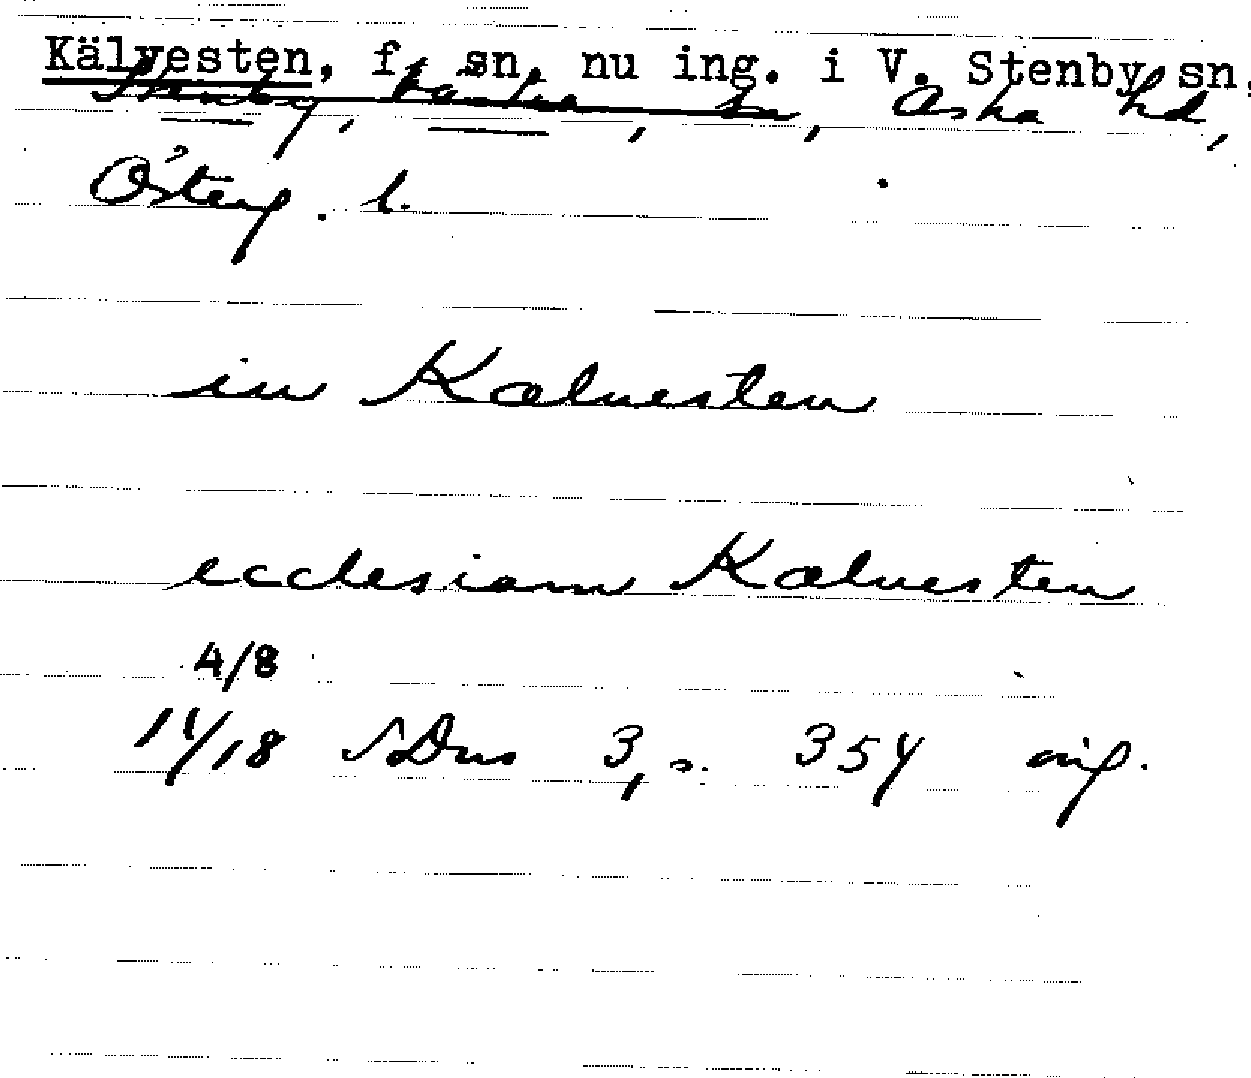 Kälvesten, f. sn. nu ing. i V. Stenby sn,
Stenby, Västra, sn, Aska hd,
Österg. l.
in Kæluesten
ecclesiam Kæluesten
4/8
14/18 SDns 3, s. 354 orig.